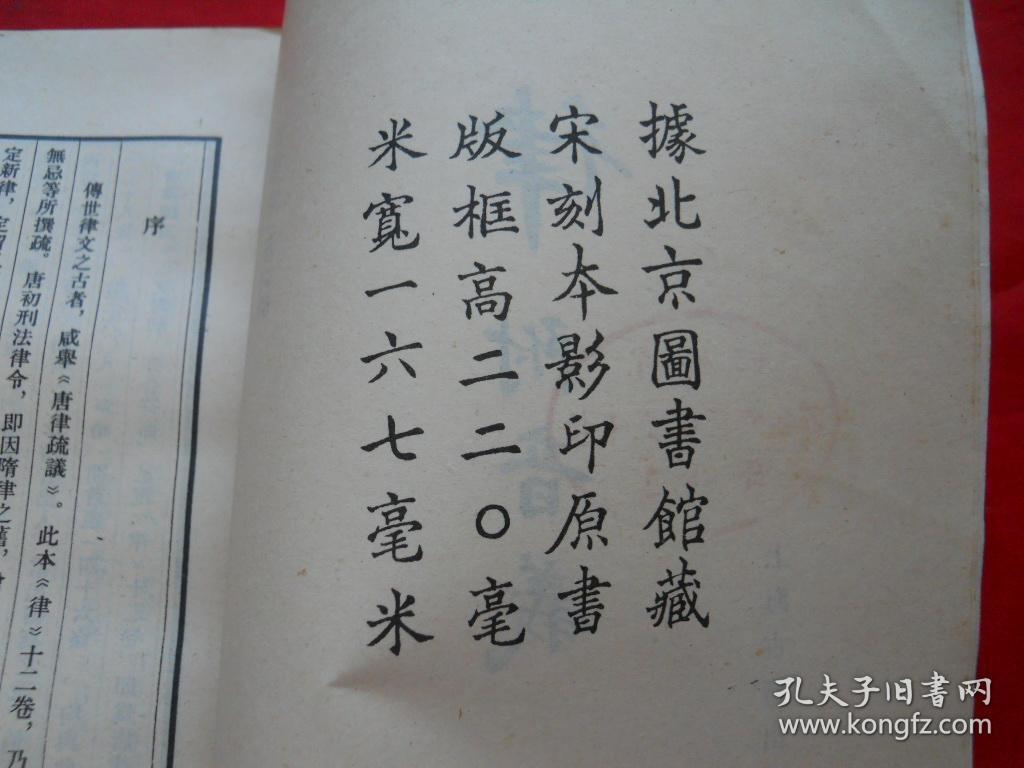 據北京圖書館藏
宋刻本影印原書
版框高二二〇毫
米寬一六七毫米
序
傳世律文之古者，咸舉《唐律疏議》。此本《律》十二卷，乃
無忌等所撰疏。唐初刑法律令，即因隋律之舊，
定新律，定
孔夫子旧书网
www.kongfz.com